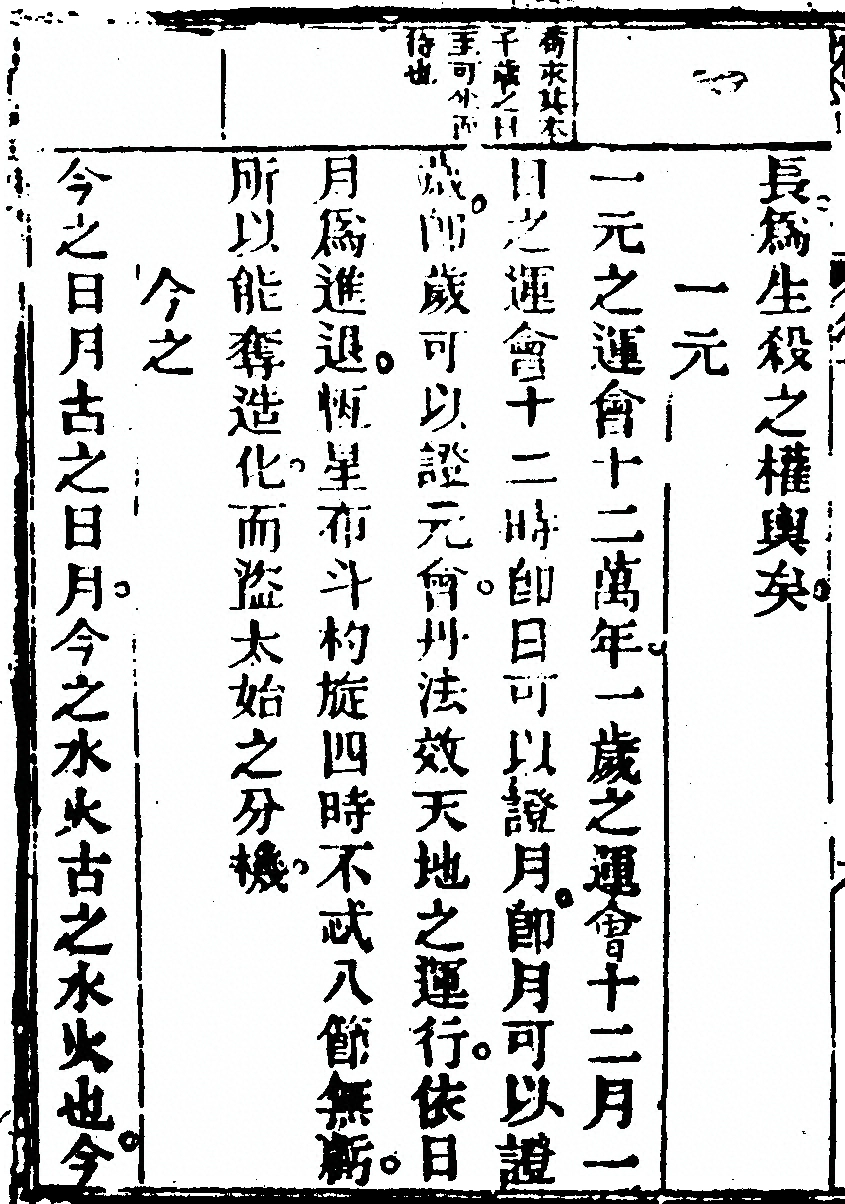 苟求其本
千歲之日
至可坐而
待也
長為生殺之權輿矣
一元
一元之運會十二萬年一歲之運會十二月一
日之運會十二時卽日可以證月卽月可以證
歲卽歲可以證元會丹法效天地之運行依日
月為進退恆星布斗杓旋四時不忒八節無虧
所以能奪造化而盜太始之分機
今之
今之日月古之日月今之水火古之水火也今